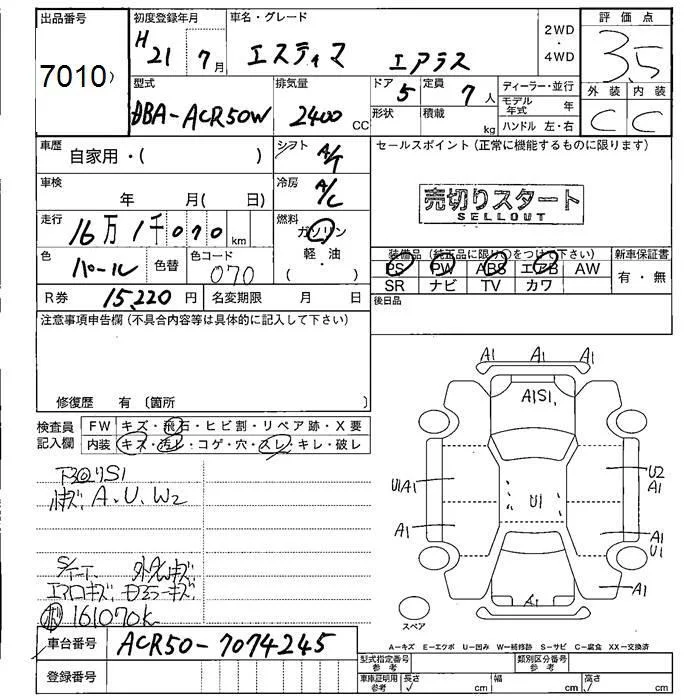 出品番号 初度登録年月 車名・グレード 2WD ・ 4WD 評価点
7010) H21 7月 エスティマ エアラス 3.5
型式 排気量 ドア 定員 ディーラー・並行 外装 内装
DBA-ACR50W 2400 CC 5 7人 モデル年式 年 C C
形状 積載 kg ハンドル 左・右
車歴 自家用・( ) シフト A/T セールスポイント(正常に機能するものに限ります)
車検 年 月( 日) 冷房 A/C 売切りスタート
SELLOUT
走行 16万1千070km 燃料 ガソリン
軽・油
( )
色 パール 色替 色コード 070 装備品(純正品に限り○をつけて下さい) 新車保証書
PS PW ABS エアB AW 有・無
SR ナビ TV カワ
R券 15,220円 名変期限 月 日 後日品
注意事項申告欄(不具合内容等は具体的に記入して下さい)
修復歴 有 〔箇所 〕
検査員 FW キズ・飛石・ヒビ割・リペア跡・X要
記入欄 内装 キズ・汚レ・コゲ・穴・スレ・キレ・破レ
S1
A、U、W2
キズ
エアロキズ
161070k
車台番号 ACR50-7074245
登録番号
A1 A1 A1
A1S1.
U1A1 U1 U2
A1
A1 A1
U1
A1 A1
スペア
A=キズ E=エクボ U=凹み W=補修跡 S=サビ C=腐食 XX=交換済
型式指定番号 参考 類別区分番号 参考
車庫証明用 参考 長さ cm 幅 cm 高さ cm